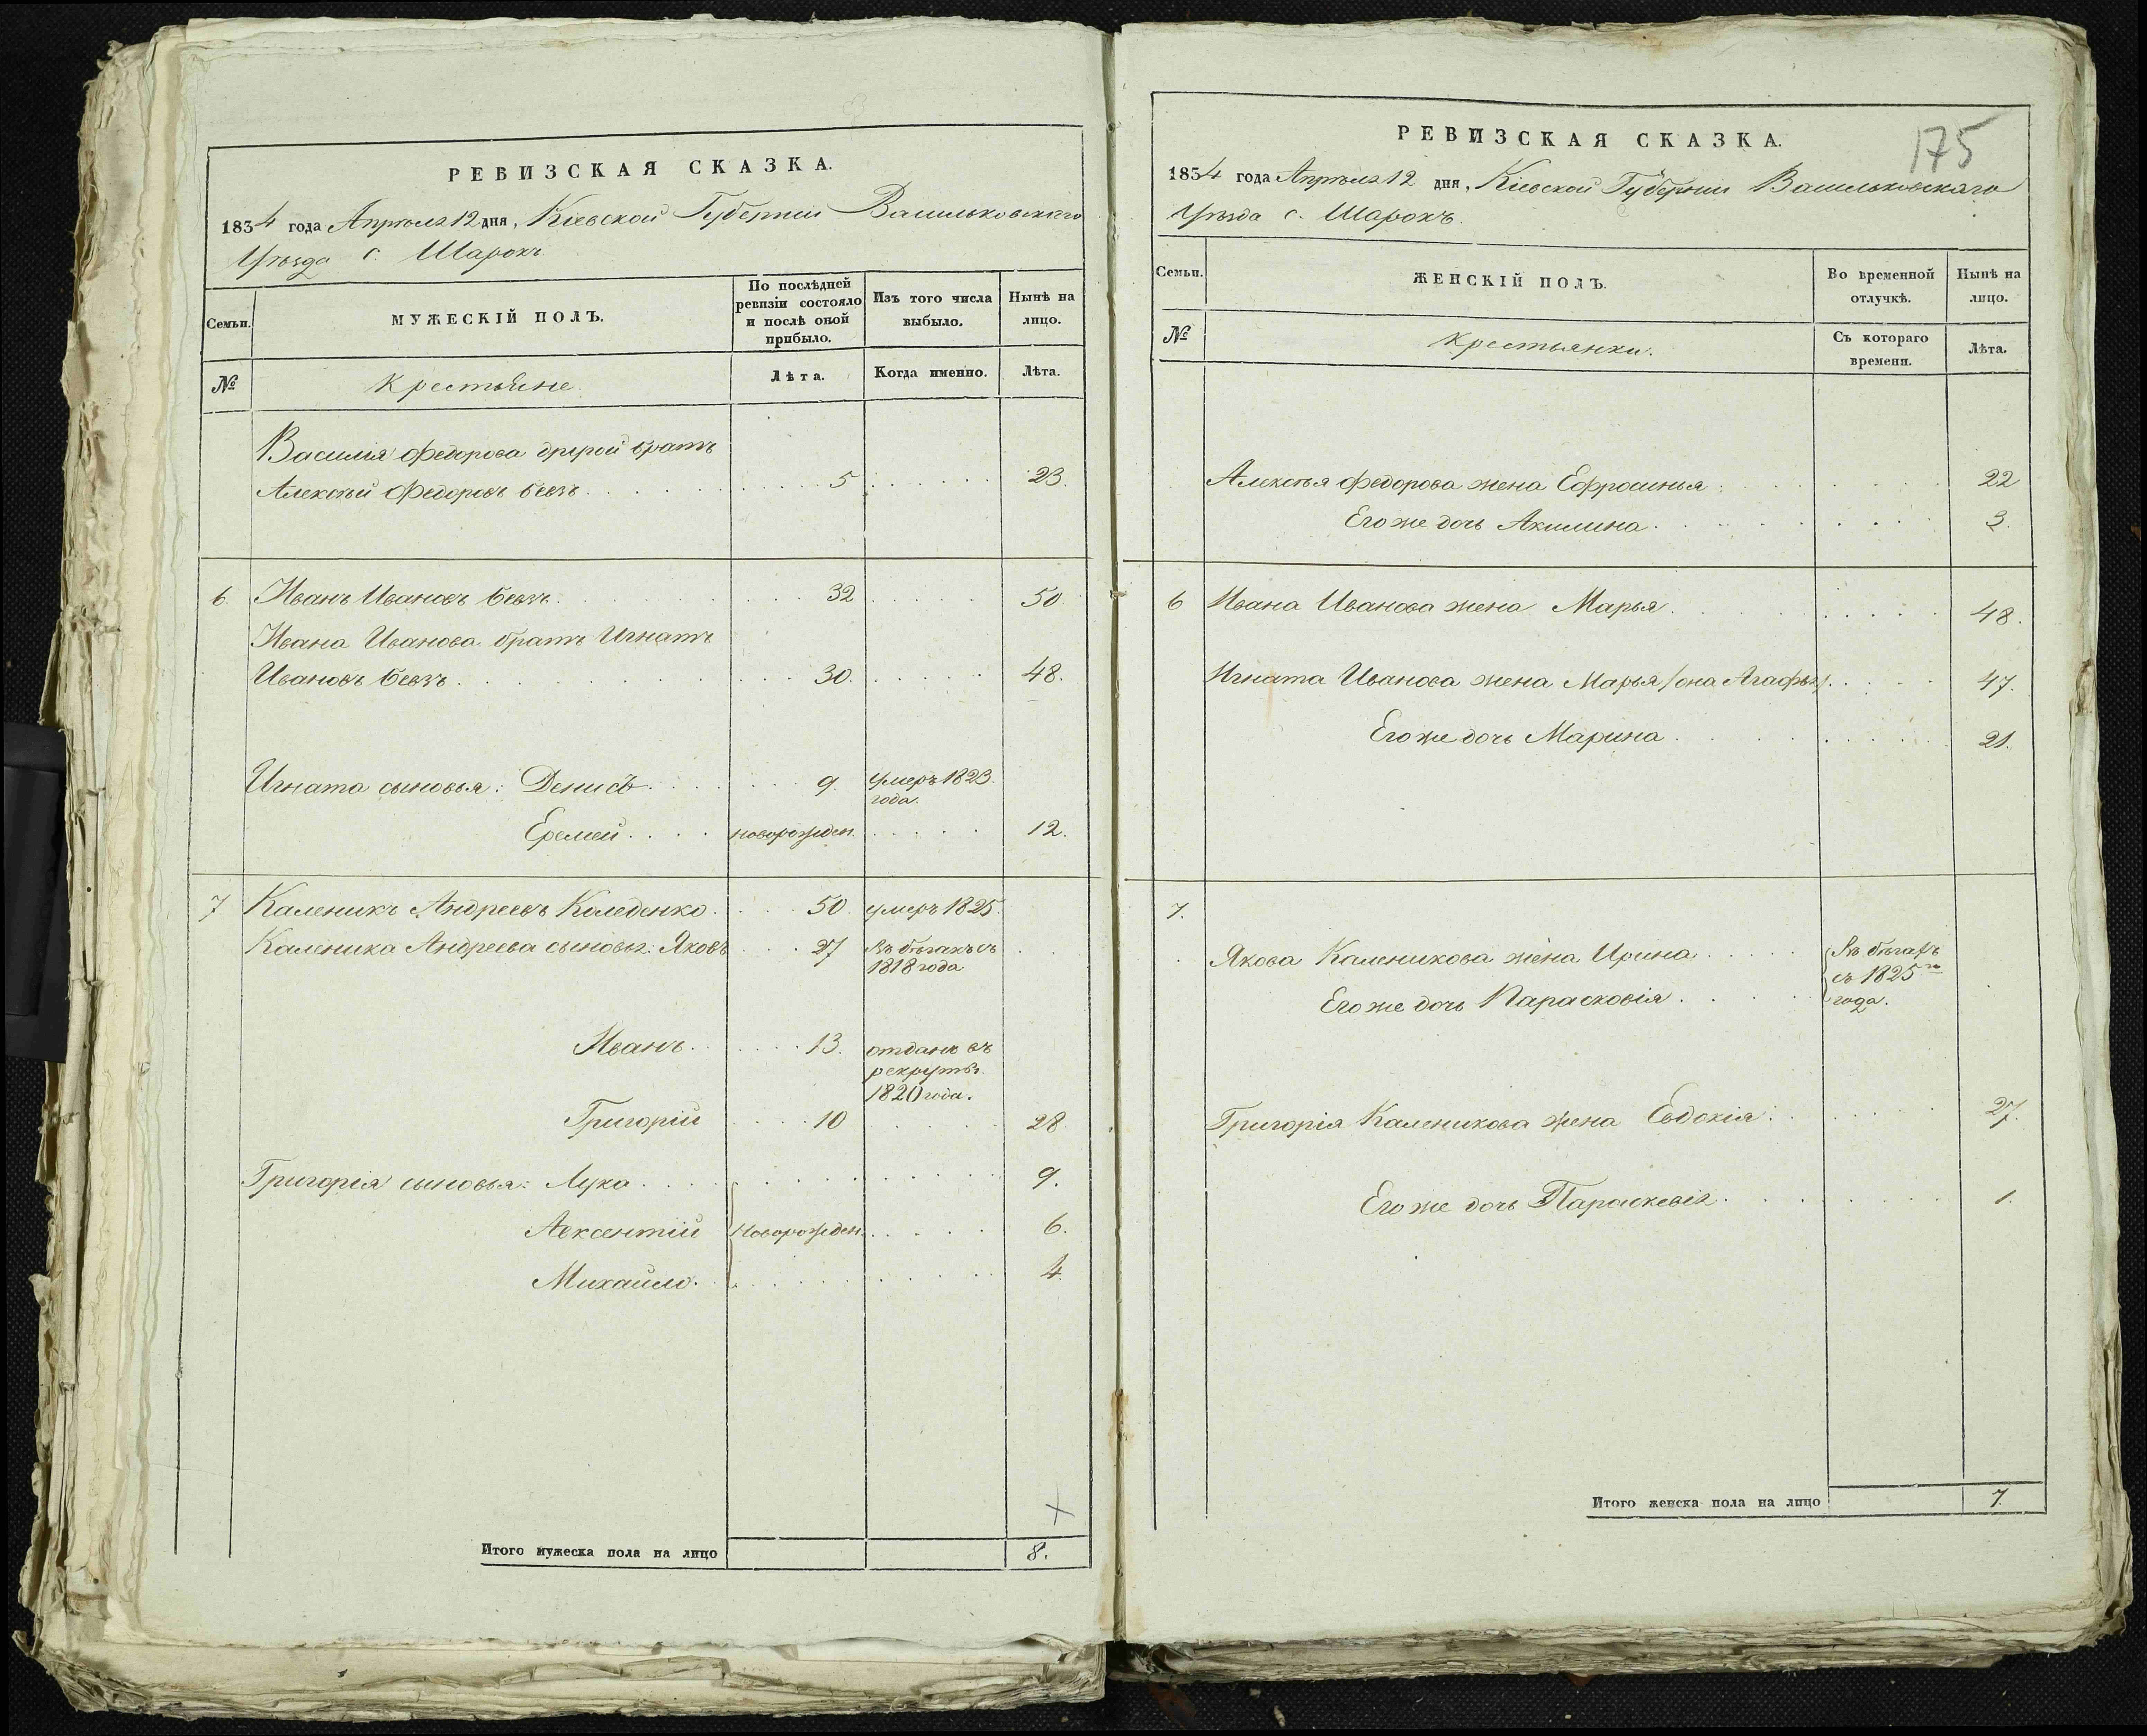 РЕВИЗСКАЯ СКАЗКА.
1834 года Апрѣля 12 дня, Кіевской Губерніи Васильковскаго
Уѣзда с. Шарокъ
Семьи.
МУЖЕСКІЙ ПОЛЪ.
По послѣдней ревизіи состояло и послѣ оной прибыло.
Изъ того числа выбыло.
Нынѣ на лицо.
№
Крестьяне.
Лѣта.
Когда именно.
Лѣта.
Василія Федорова другой братъ
Алексѣй Федоровъ Бевзъ 5 23.
6 Иванъ Ивановъ Бевзъ 32 50
Ивана Иванова братъ Игнатъ
Ивановъ Бевзъ 30. 48.
Игната сыновья: Денисъ 9. умеръ 1823.
года.
Еремей новорожден. 12.
7 Каленикъ Андреевъ Коледенко 50 умеръ 1825.
Каленика Андреева сыновья: Яковъ 27 Въ бѣгахъ съ
1818 года
Иванъ 13. отданъ въ
рекруты.
1820 года.
Григорій 10 28
Григорія сыновья: Лука 9.
Авксентій Новорожден. 6.
Михайло. 4.
Итого мужеска пола на лицо 8.
175
РЕВИЗСКАЯ СКАЗКА.
1834 года Апрѣля 12 дня, Кіевской Губерніи Васильковскаго
Уѣзда с. Шарокъ.
Семьи.
ЖЕНСКІЙ ПОЛЪ.
Во временной отлучкѣ.
Нынѣ на лицо.
№
Крестьянки.
Съ котораго времени.
Лѣта.
Алексѣя Федорова жена Ефросинья 22
Его же дочь Акилина 3.
6 Ивана Иванова жена Марья 48.
Игната Иванова жена Марья /она Агафья/ 47.
Его же дочь Марина 21.
7.
Якова Каленикова жена Ирина Въ бѣгахъ
съ 1825го
Его же дочь Парасковія года.
Григорія Каленикова жена Евдокія 27.
Его же дочь Параскевія 1.
Итого женска пола на лицо 7.